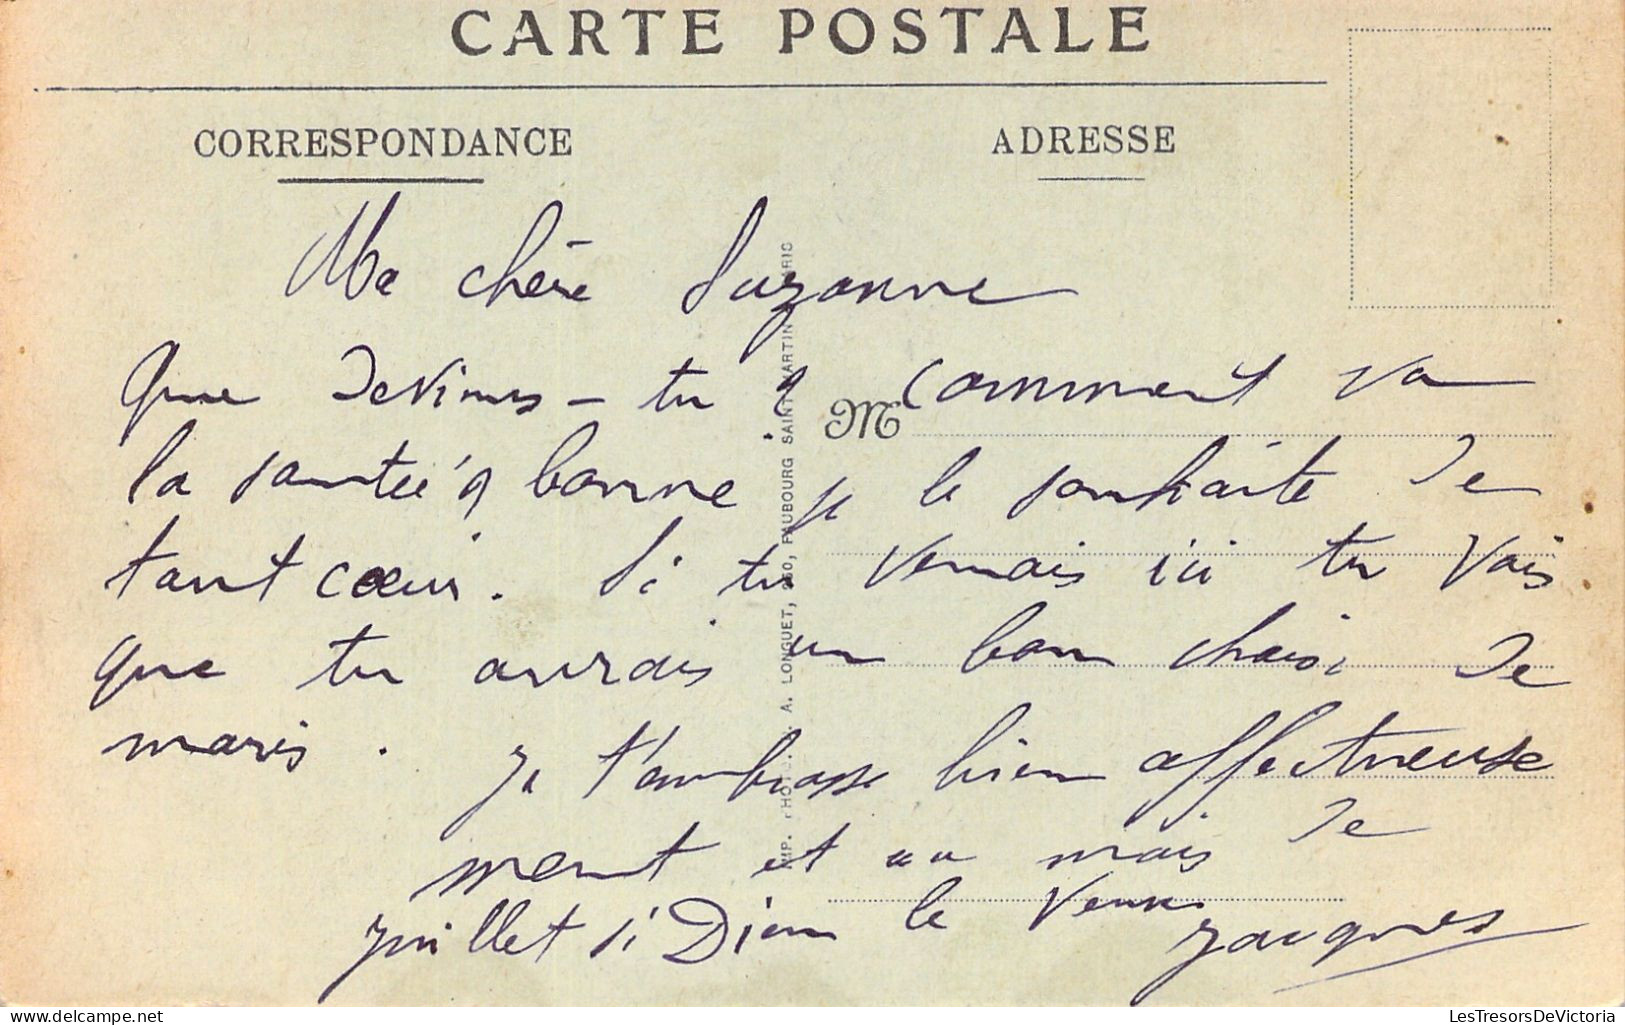 CARTE POSTALE
CORRESPONDANCE
ADRESSE
Ma chère Suzanne
Que deviens-tu ? comment va
M
la santée ? bonne je le souhaite de
tant cœur. Si tu venais ici tu vois
que tu aurais un bon choix de
maris.
Je t'ambrasse bien affectueuse
ment et au mois de
juillet si Dieu le veux
Jacques
IMP. PHOT. A. LONGUET, FAUBOURG SAINT MARTIN
LesTresorsDeVictoria
delcampe.net